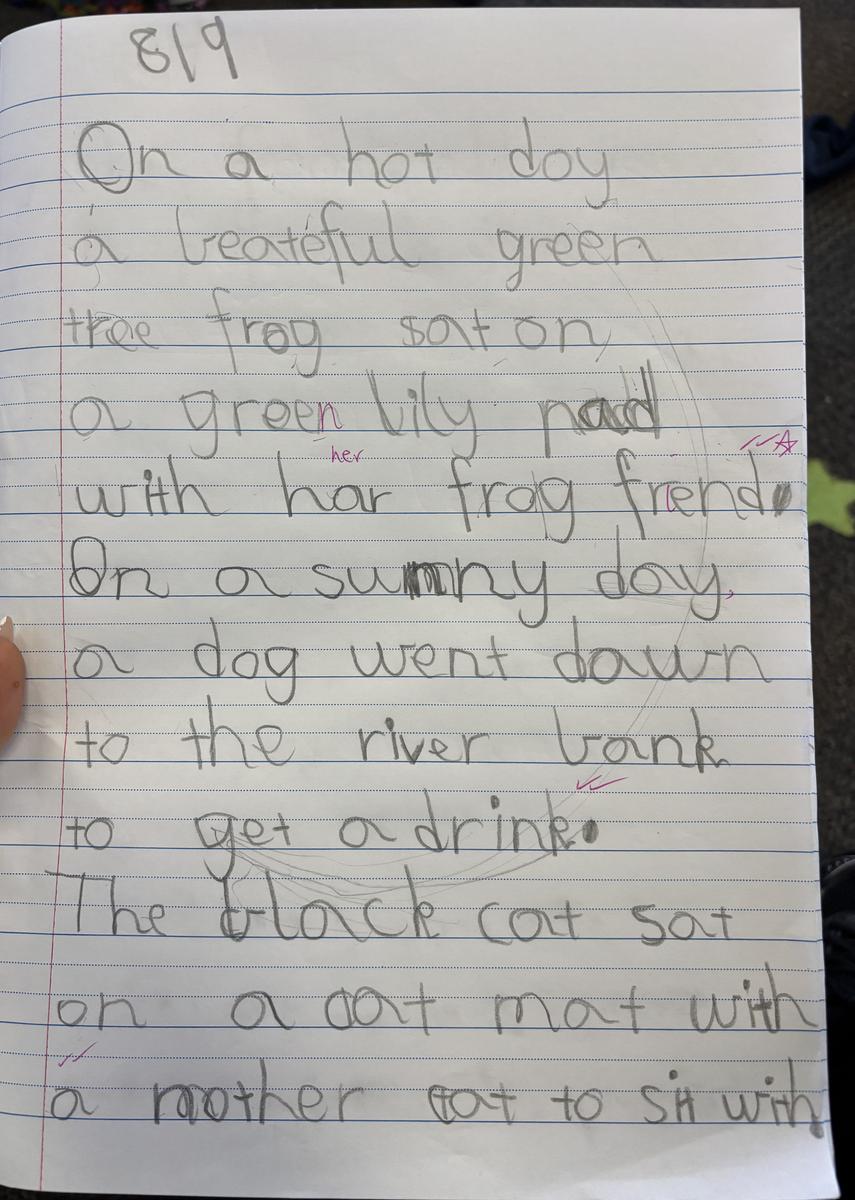 8/9
On a hot day
a beateful green
tree frog sat on
a green lily pad
her
with har frog friend.
On a sunny day,
a dog went down
to the river bank
to get a drink.
The black cat sat
on a cat mat with
a mother cat to sit with.